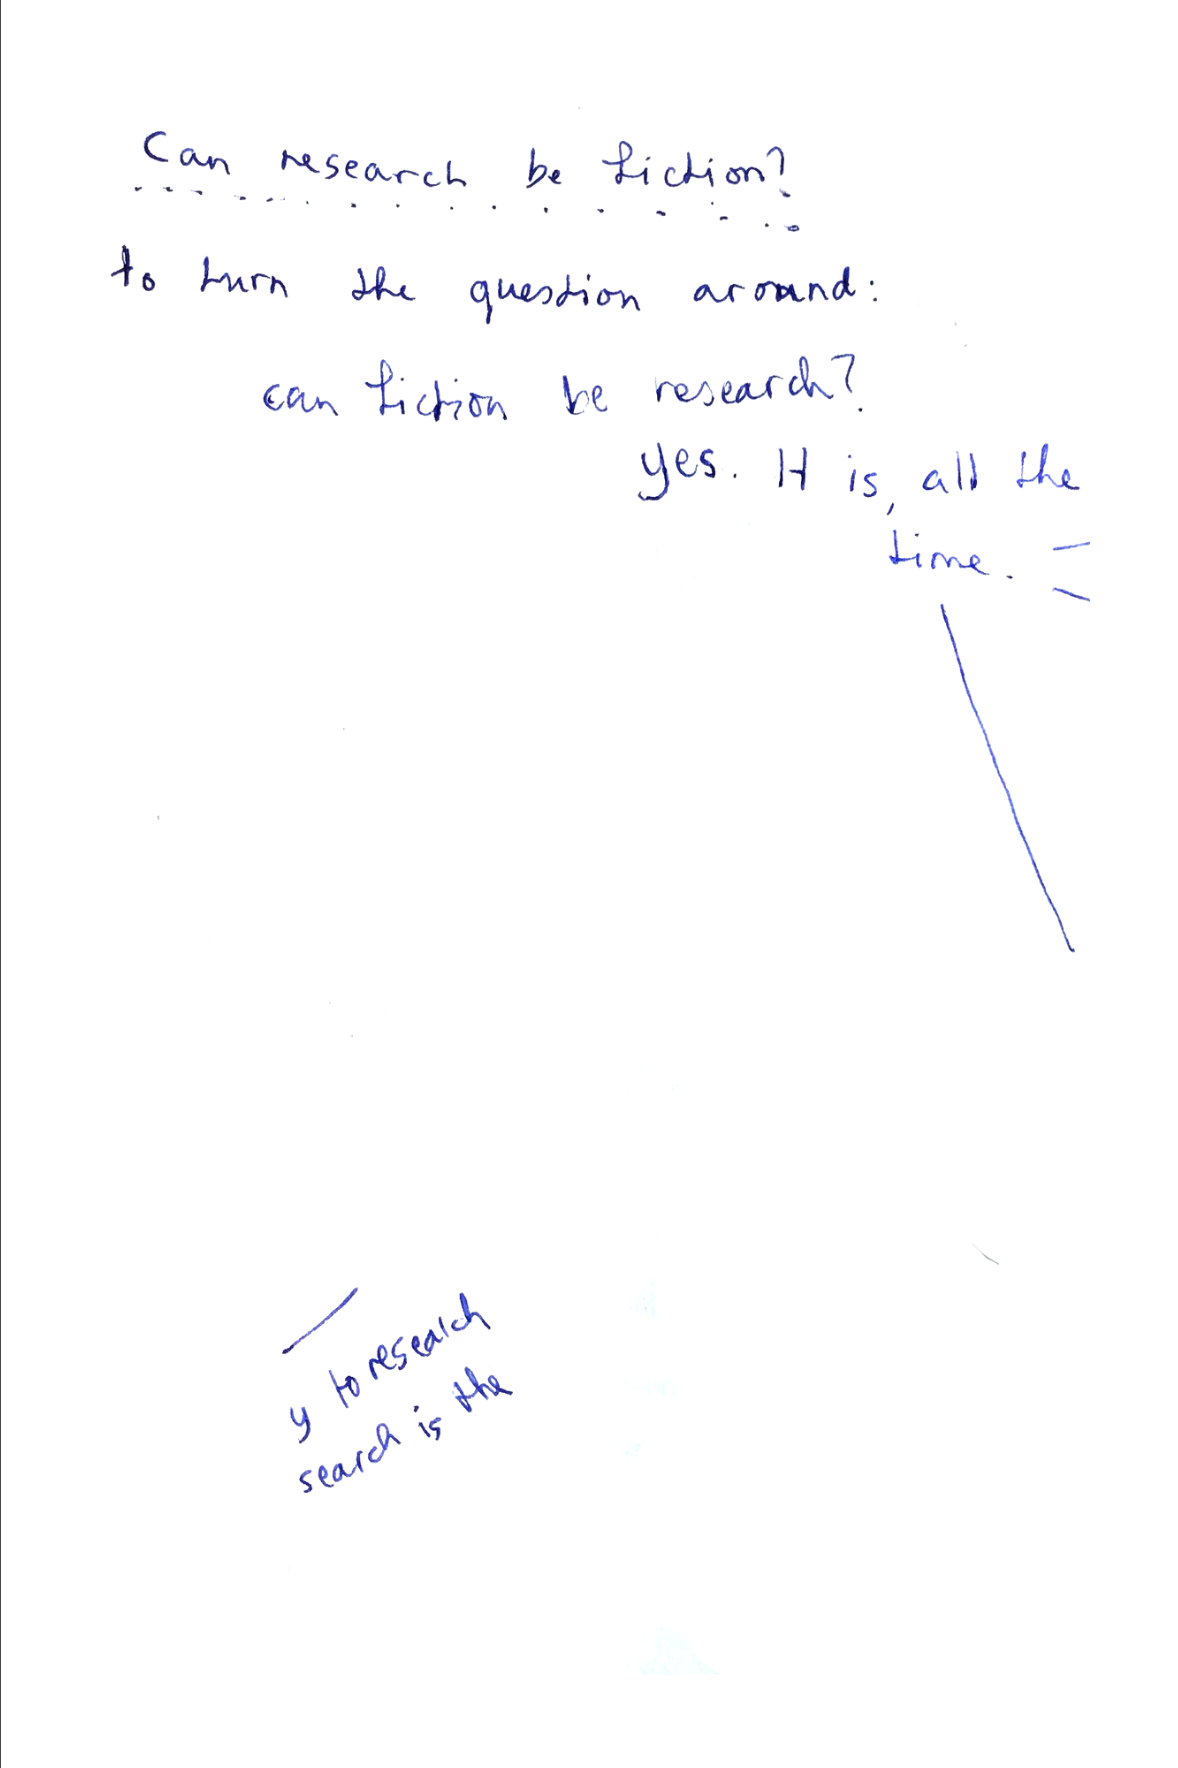 Can research be fiction?
to turn the question around:
can fiction be research?
yes. It is, all the
time.
y to research
search is the